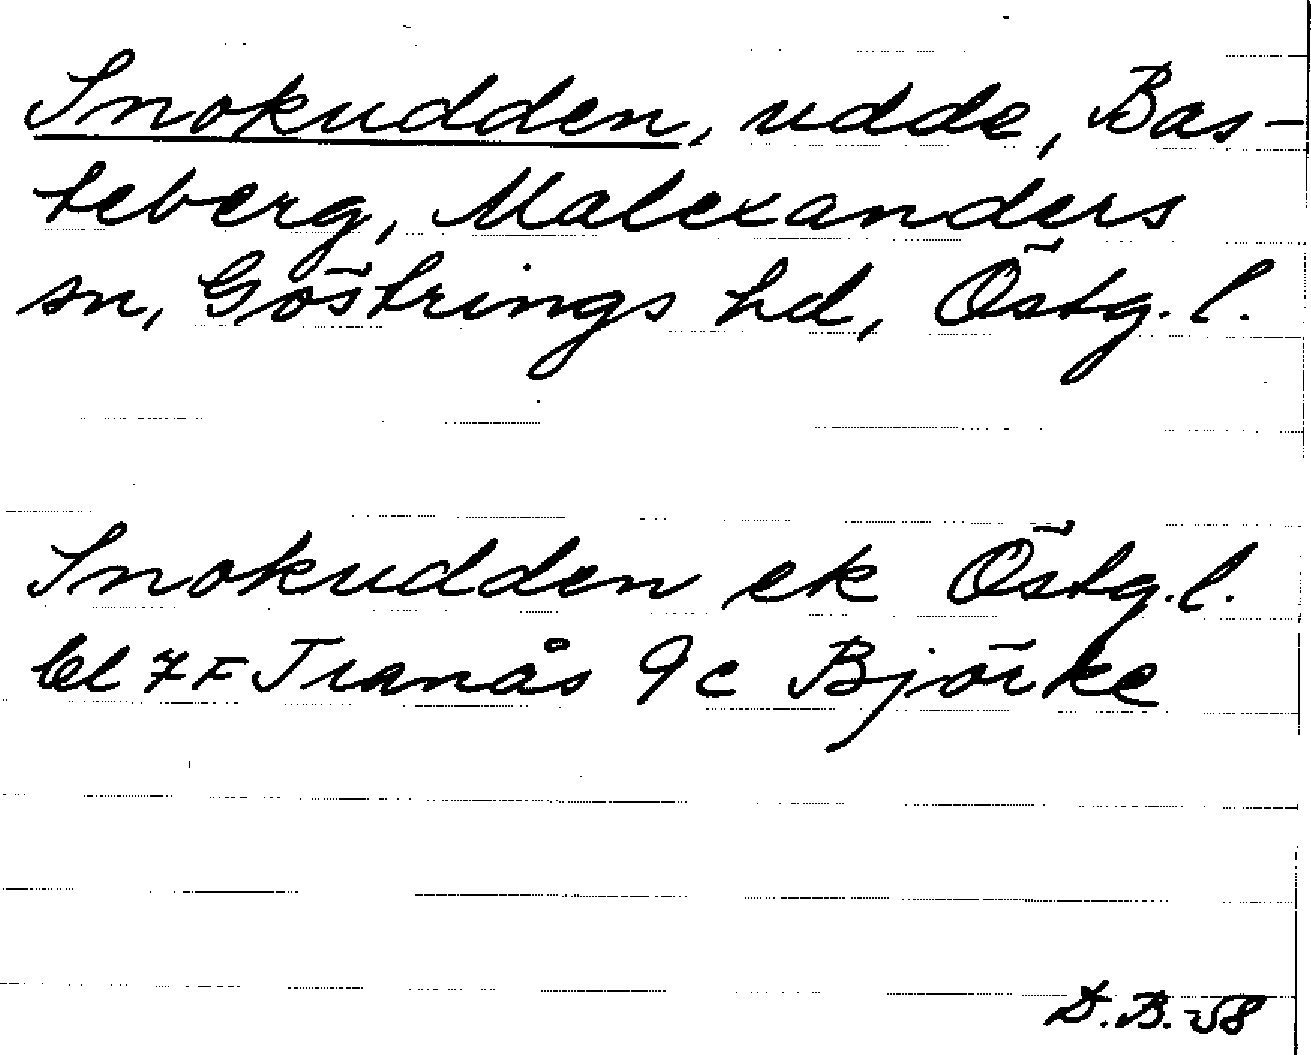 Snokudden, udde, Bas-
teberg, Malexanders
sn, Göstrings hd, Östg. l.
Snokudden ek Östg. l.
bl 7F Tranås 9c Björke
D.B.-58